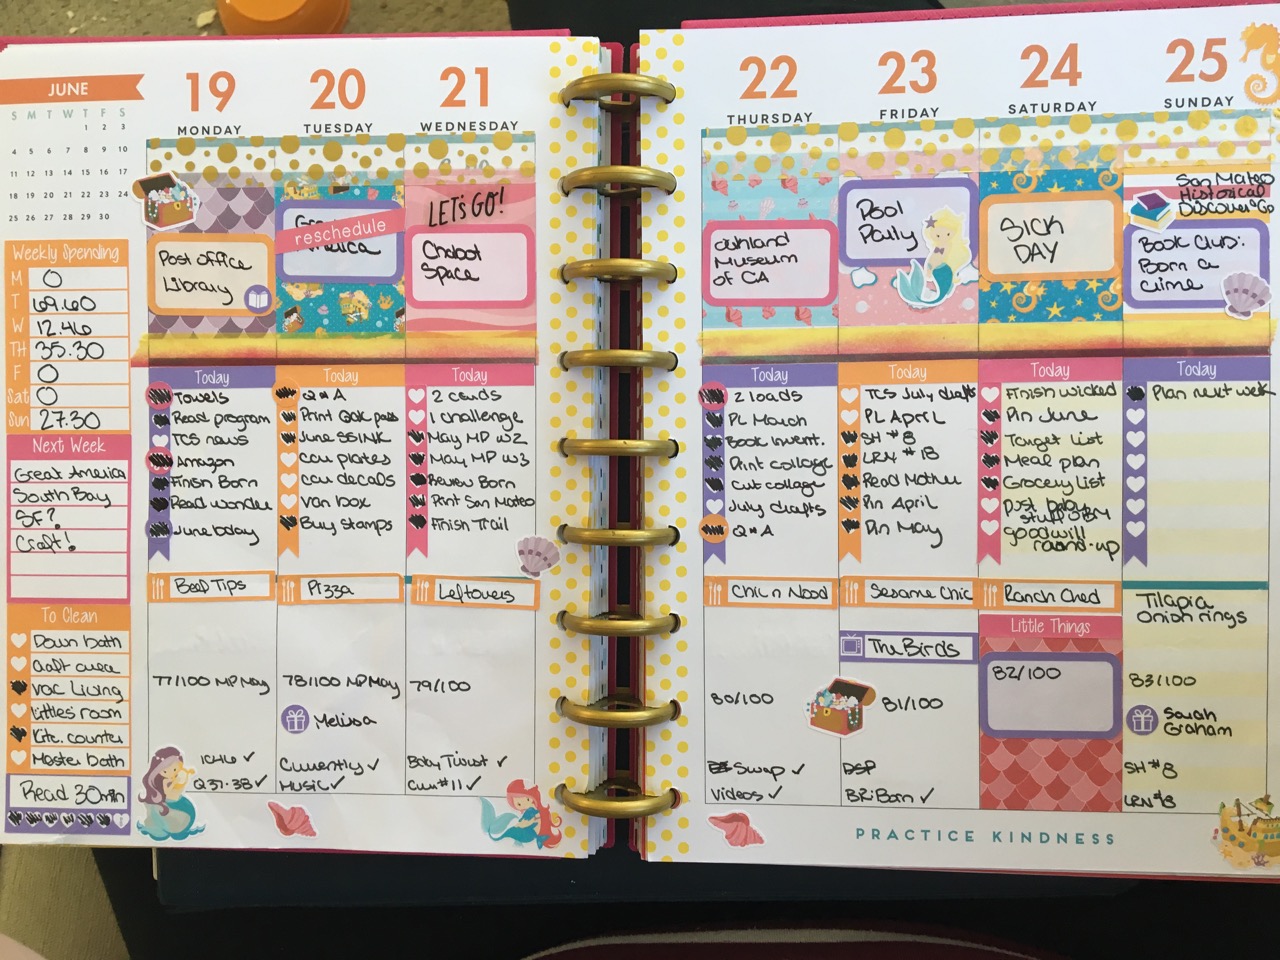 JUNE
S M T W T F S
1 2 3
4 5 6 7 8 9 10
11 12 13 14 15 16 17
18 19 20 21 22 23 24
25 26 27 28 29 30
Weekly Spending
M 0
T 69.60
W 12.46
TH 35.30
F 0
Sat 0
Sun 27.30
Next Week
Great America
South Bay
SF?
Craft!
To Clean
Down bath
Craft area
Vac Living
Littles' room
Kitc. counter
Master bath
Read 30 min
19
MONDAY
Post office
Library
Today
Towels
Read program
TCS news
Amazon
Finish Born
Read Wonder
June today
Beef Tips
77/100 MP May
Q37-38 ✓
20
TUESDAY
reschedule
Today
Q & A
Print Oak pass
June SSINK
CCU plates
CCU decals
Van box
Buy stamps
Pizza
78/100 MP May
Melissa
Currently ✓
Music ✓
21
WEDNESDAY
LET'S GO!
Chabot
Space
Today
2 cards
1 challenge
May MP W2
May MP W3
Review Born
Print San Mateo
Finish Trail
Leftovers
79/100
Baby Twist ✓
#11 ✓
22
THURSDAY
Oakland
Museum
of CA
Today
2 loads
PL March
Book Invent.
Print collage
Cut collage
July drafts
Q & A
Chic n Nood
80/100
Swap ✓
Videos ✓
23
FRIDAY
Pool
Party
Today
TCS July drafts
PL April
SH #8
LRN #18
Read Mother
Pin April
Pin May
Sesame Chic
The Birds
81/100
DSP
BRiBorn ✓
24
SATURDAY
SICK
DAY
Today
Finish Wicked
Pin June
Target List
Meal plan
Grocery List
Put baby
stuff
Goodwill
round-up
Ranch Ched
Little Things
82/100
25
SUNDAY
San Mateo
Historical
Discover & Go
Book Club:
Born a
Crime
Today
Plan next week
Tilapia
Onion rings
83/100
Sarah
Graham
SH #8
PRACTICE KINDNESS